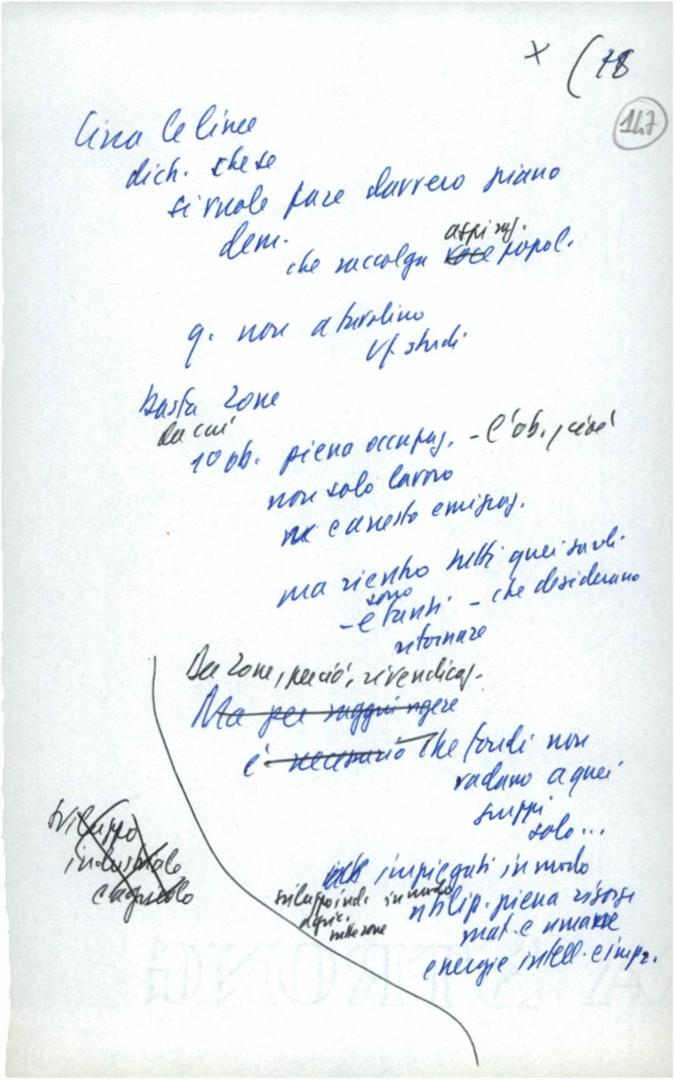 x (18
147
dich. che se
si vuole fare davvero piano
dem.
aspiraz.
che raccolga voce popol.
q. non a tavolino
studi
Basta zone
da cui
1º ob. piena occupaz. - l'ob., cioè
non solo lavoro
e arresto emigraz.
ma rientro tutti quei sardi
sono
- e tanti - che desiderano
ritornare
Da zone, perciò, rivendicaz.
Ma per raggiungere
è necessario che fondi non
vadano a quei
gruppi
solo...
sviluppo
industriale
e agricolo
impiegati in modo
sviluppo ind. in modo
agric.
nelle zone
utiliz. piena risorse
mat. e umane
energie intell. e impr.